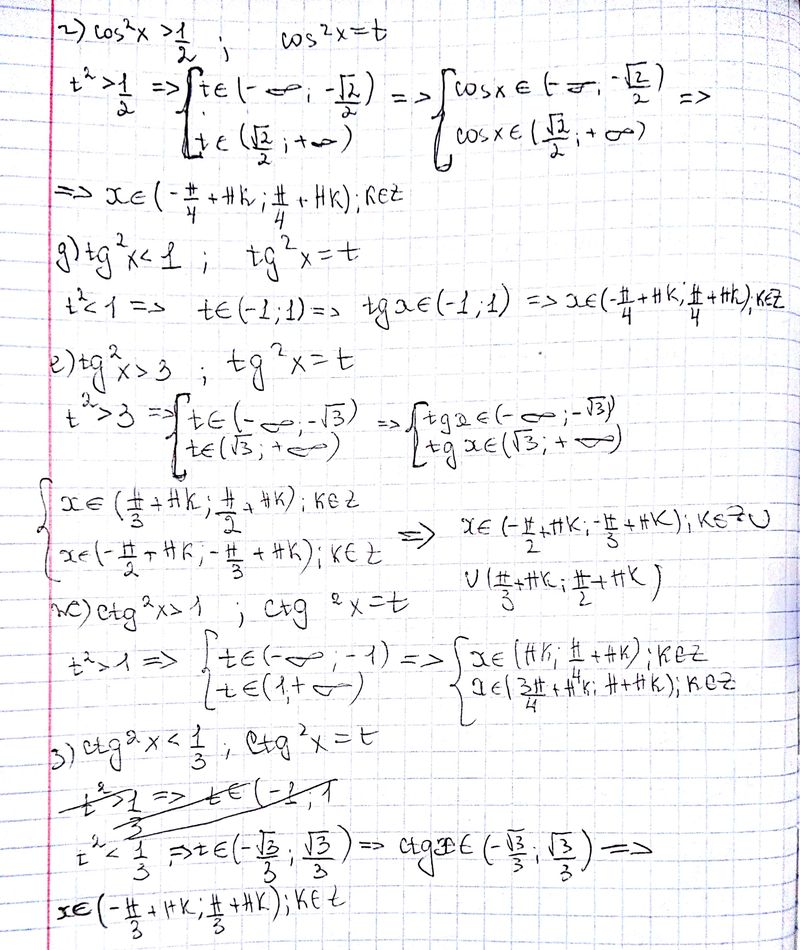 г) cos²x > 1/2 ; cos²x = t
t² > 1/2 => [ t∈(-∞; -√2/2) => [ cosx∈(-∞; -√2/2) =>
t∈(√2/2; +∞) cosx∈(√2/2; +∞)
=> x∈(-π/4 + πk; π/4 + πk); k∈Z
д) tg²x < 1 ; tg²x = t
t² < 1 => t∈(-1; 1) => tgx∈(-1; 1) => x∈(-π/4 + πk; π/4 + πk); k∈Z
е) tg²x > 3 ; tg²x = t
t² > 3 => [ t∈(-∞; -√3) => [ tgx∈(-∞; -√3)
t∈(√3; +∞) tgx∈(√3; +∞)
{ x∈(π/3 + πk; π/2 + πk); k∈Z
x∈(-π/2 + πk; -π/3 + πk); k∈Z => x∈(-π/2 + πk; -π/3 + πk); k∈Z ∪
∪ (π/3 + πk; π/2 + πk)
ж) ctg²x > 1 ; ctg²x = t
t² > 1 => { t∈(-∞; -1) => { x∈(πk; π/4 + πk); k∈Z
t∈(1, +∞) x∈(3π/4 + πk; π + πk); k∈Z
з) ctg²x < 1/3 ; ctg²x = t
t² > 1/3 => t∈(-1, 1
t² < 1/3 => t∈(-√3/3; √3/3) => ctgx∈(-√3/3; √3/3) =>
x∈(-π/3 + πk; π/3 + πk); k∈Z